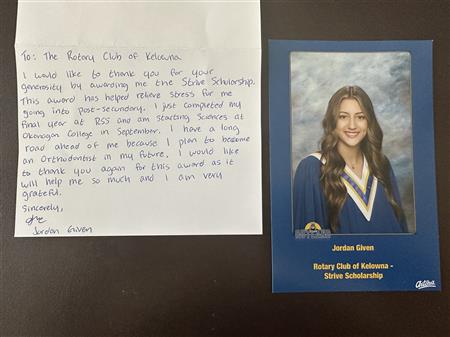 To: The Rotary Club of Kelowna
I would like to thank you for your
generosity by awarding me the Strive Scholarship.
This award has helped relieve stress for me
going into post-secondary. I just completed my
final year at RSS and am starting Sciences at
Okanagan College in September. I have a long
road ahead of me because I plan to become
an Orthodontist in my future. I would like
to thank you again for this award as it
will help me so much and I am very
grateful.
Sincerely,
Jordan Given
Jordan Given
Rotary Club of Kelowna -
Strive Scholarship